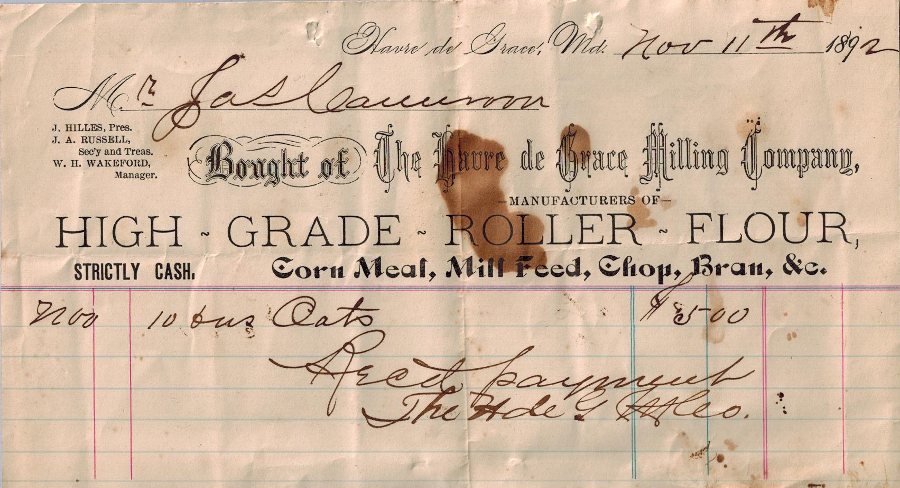 Havre de Grace, Md. Nov 11th 1892
Mr. Jas Cameron
J. HILLES, Pres.
J. A. RUSSELL,
Sec'y and Treas.
W. H. WAKEFORD,
Manager.
Bought of The Havre de Grace Milling Company,
—MANUFACTURERS OF—
HIGH - GRADE - ROLLER - FLOUR,
STRICTLY CASH. Corn Meal, Mill Feed, Chop, Bran, &c.
Nov 10 bus Oats $ 5 00
Rec'd payment
The H de G M Co.